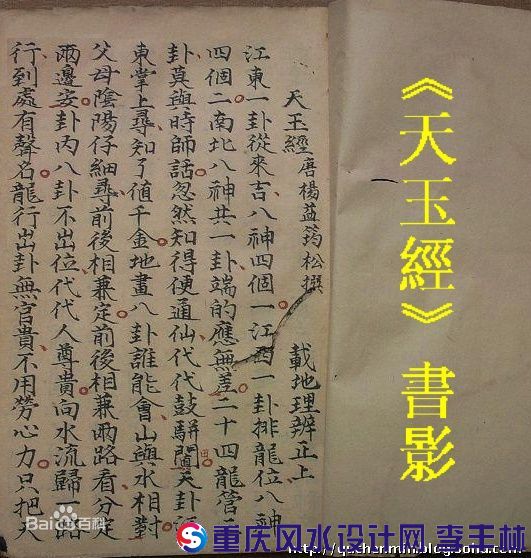 天玉經唐楊益筠松撰 載地理辨正上
江東一卦從來吉八神四個一江西一卦排龍位八神
四個二南北八神共一卦端的應無差二十四龍管三
卦莫與時師話忽然知得便通仙代代鼓駢闐天卦江
東掌上尋知了值千金地畫八卦誰能會山與水相對
父母陰陽仔細尋前後相兼定前後相兼兩路看分定
兩邊安卦內八卦不出位代代人尊貴向水流歸一路
行到處有聲名龍行出卦無官貴不用勞心力只把天
《天玉經》書影
Bai百科
重庆风水设计网